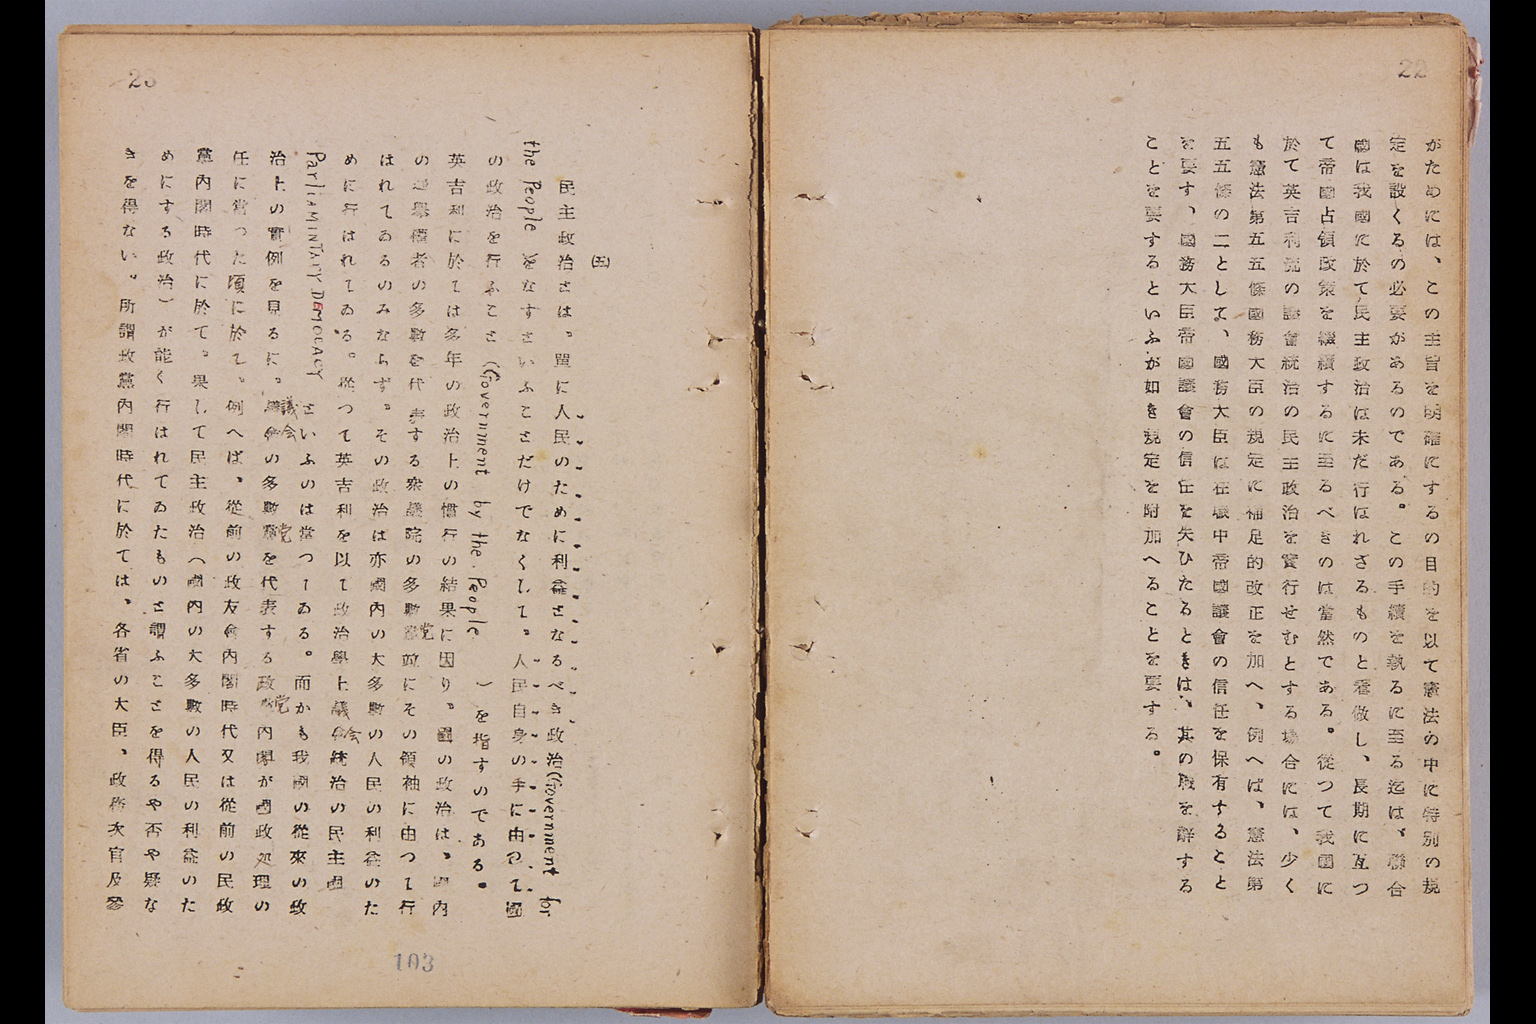 22
がためには、この主旨を明確にするの目的を以て憲法の中に特別の規
定を設くるの必要があるのである。この手續を執るに至る迄は、聯合
國は我國に於て民主政治は未だ行はれざるものと看做し、長期に亙つ
て帝國占領政策を繼續するに至るべきのは當然である。從つて我國に
於て英吉利流の議會統治の民主政治を實行せむとする場合には、少く
も憲法第五五條國務大臣の規定に補足的改正を加へ、例へば、憲法第
五五條の二として、國務大臣は在職中帝國議會の信任を保有すること
を要す、國務大臣帝國議會の信任を失ひたるときは、其の職を辭する
ことを要するといふが如き規定を附加へることを要する。
23
(五)
民主政治とは。單に人民のために利益となるべき政治(Government for
the People をなすといふことだけでなくして。人民自身の手に由つて國
の政治を行ふこと(Government by the People )を指すのである。
英吉利に於ては多年の政治上の慣行の結果に因り。國の政治は、國内
の選擧權者の多數を代表する衆議院の多數党並にその領袖に由つて行
はれてゐるのみならず。その政治は亦國内の大多數の人民の利益のた
めに行はれてゐる。從つて英吉利を以て政治學上議会統治の民主國
ParliAMINTACY DEMOCACY といふのは當つてゐる。而かも我國の從來の政
治上の實例を見るに。議会の多數党を代表する政党内閣が國政処理の
任に當つた頃に於て。例へば、從前の政友會内閣時代又は從前の民政
黨内閣時代に於て。果して民主政治(國内の大多數の人民の利益のた
めにする政治)が能く行はれてゐたものと謂ふことを得るや否や疑な
きを得ない。所謂政黨内閣時代に於ては、各省の大臣、政務次官及參
103